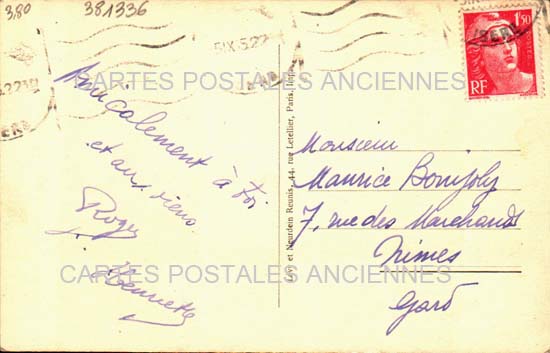 3,80
381336
1F,50
RF
CARTES POSTALES ANCIENNES
Amicalement à toi
et aux tiens
Roger
Henriette
Lévy et Neurdein Réunis, 44, rue Letellier, Paris, Imp.
Monsieur
Maurice Bonijoly
7, rue des Marchands
Nimes
Gard
CARTES POSTALES ANCIENNES